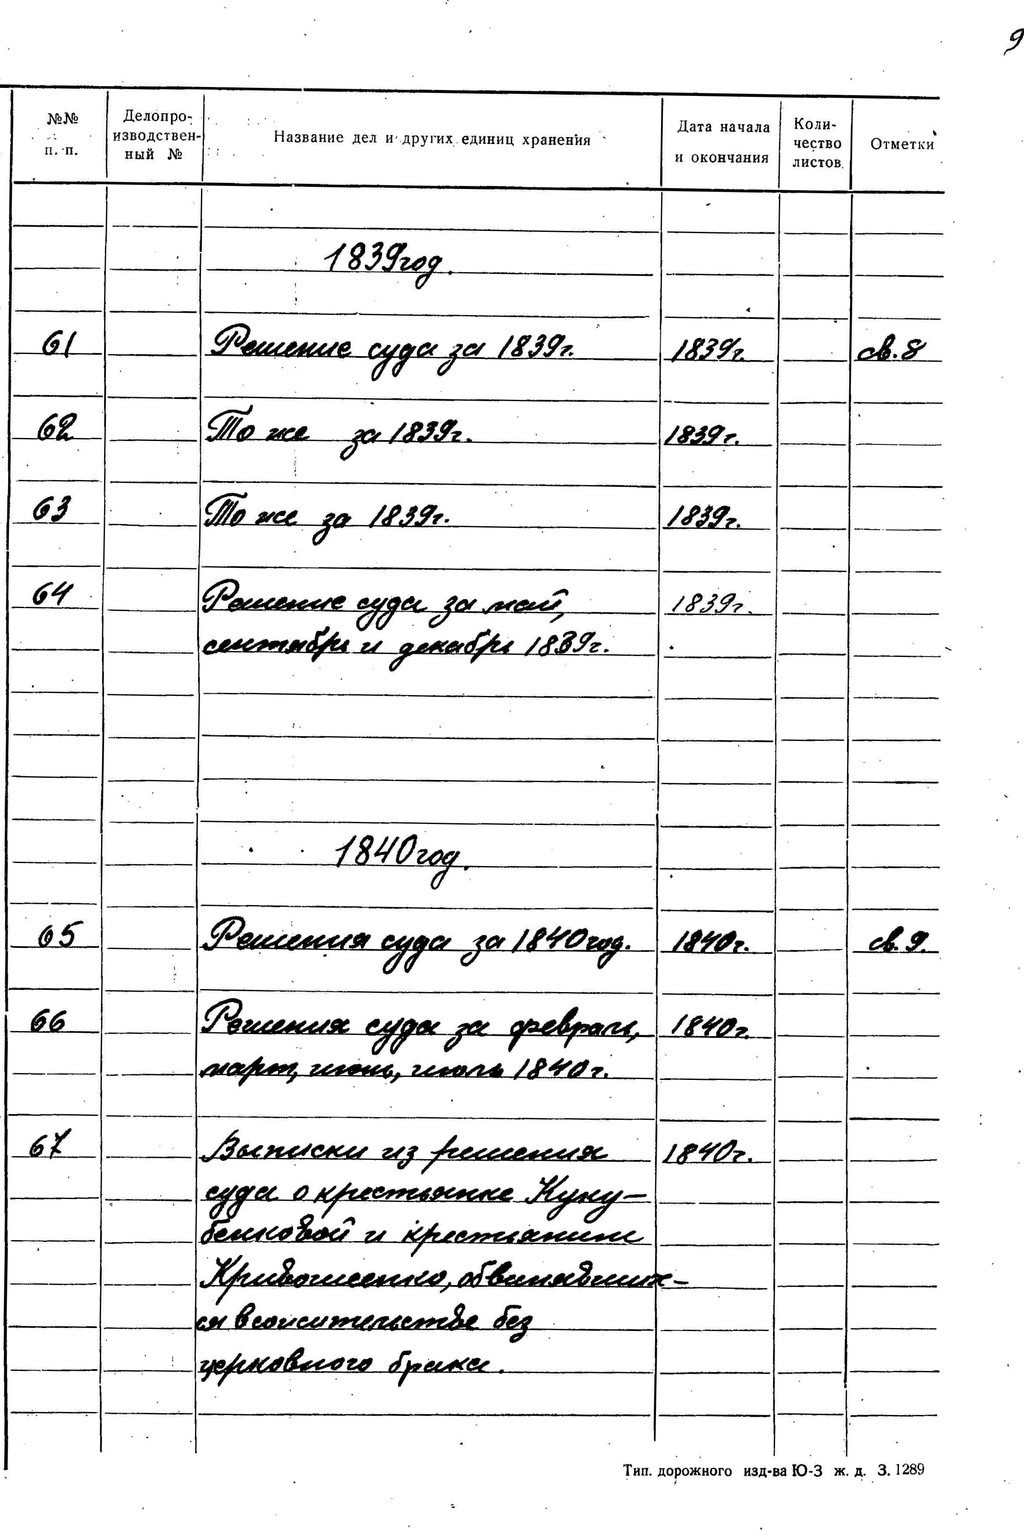 9
№№ п. п.
Делопро-
изводствен-
ный №
Название дел и других единиц хранения
Дата начала
и окончания
Коли-
чество
листов
Отметки
1839 год.
61 Решение суда за 1839г. 1839г. св. 8
62 То же за 1839г. 1839г.
63 То же за 1839г. 1839г.
64 Решение суда за май, 1839г.
сентябрь и декабрь 1839г.
1840 год.
65 Решения суда за 1840 год. 1840г. св. 9.
66 Решения суда за февраль, 1840г.
март, июнь, июль 1840г.
67 Выписки из решения 1840г.
суда о крестьянке Куку-
беньковой и крестьянине
Кривошеенко, обвинявших-
ся в сожительстве без
церковного брака.
Тип. дорожного изд-ва Ю-З ж. д. З. 1289